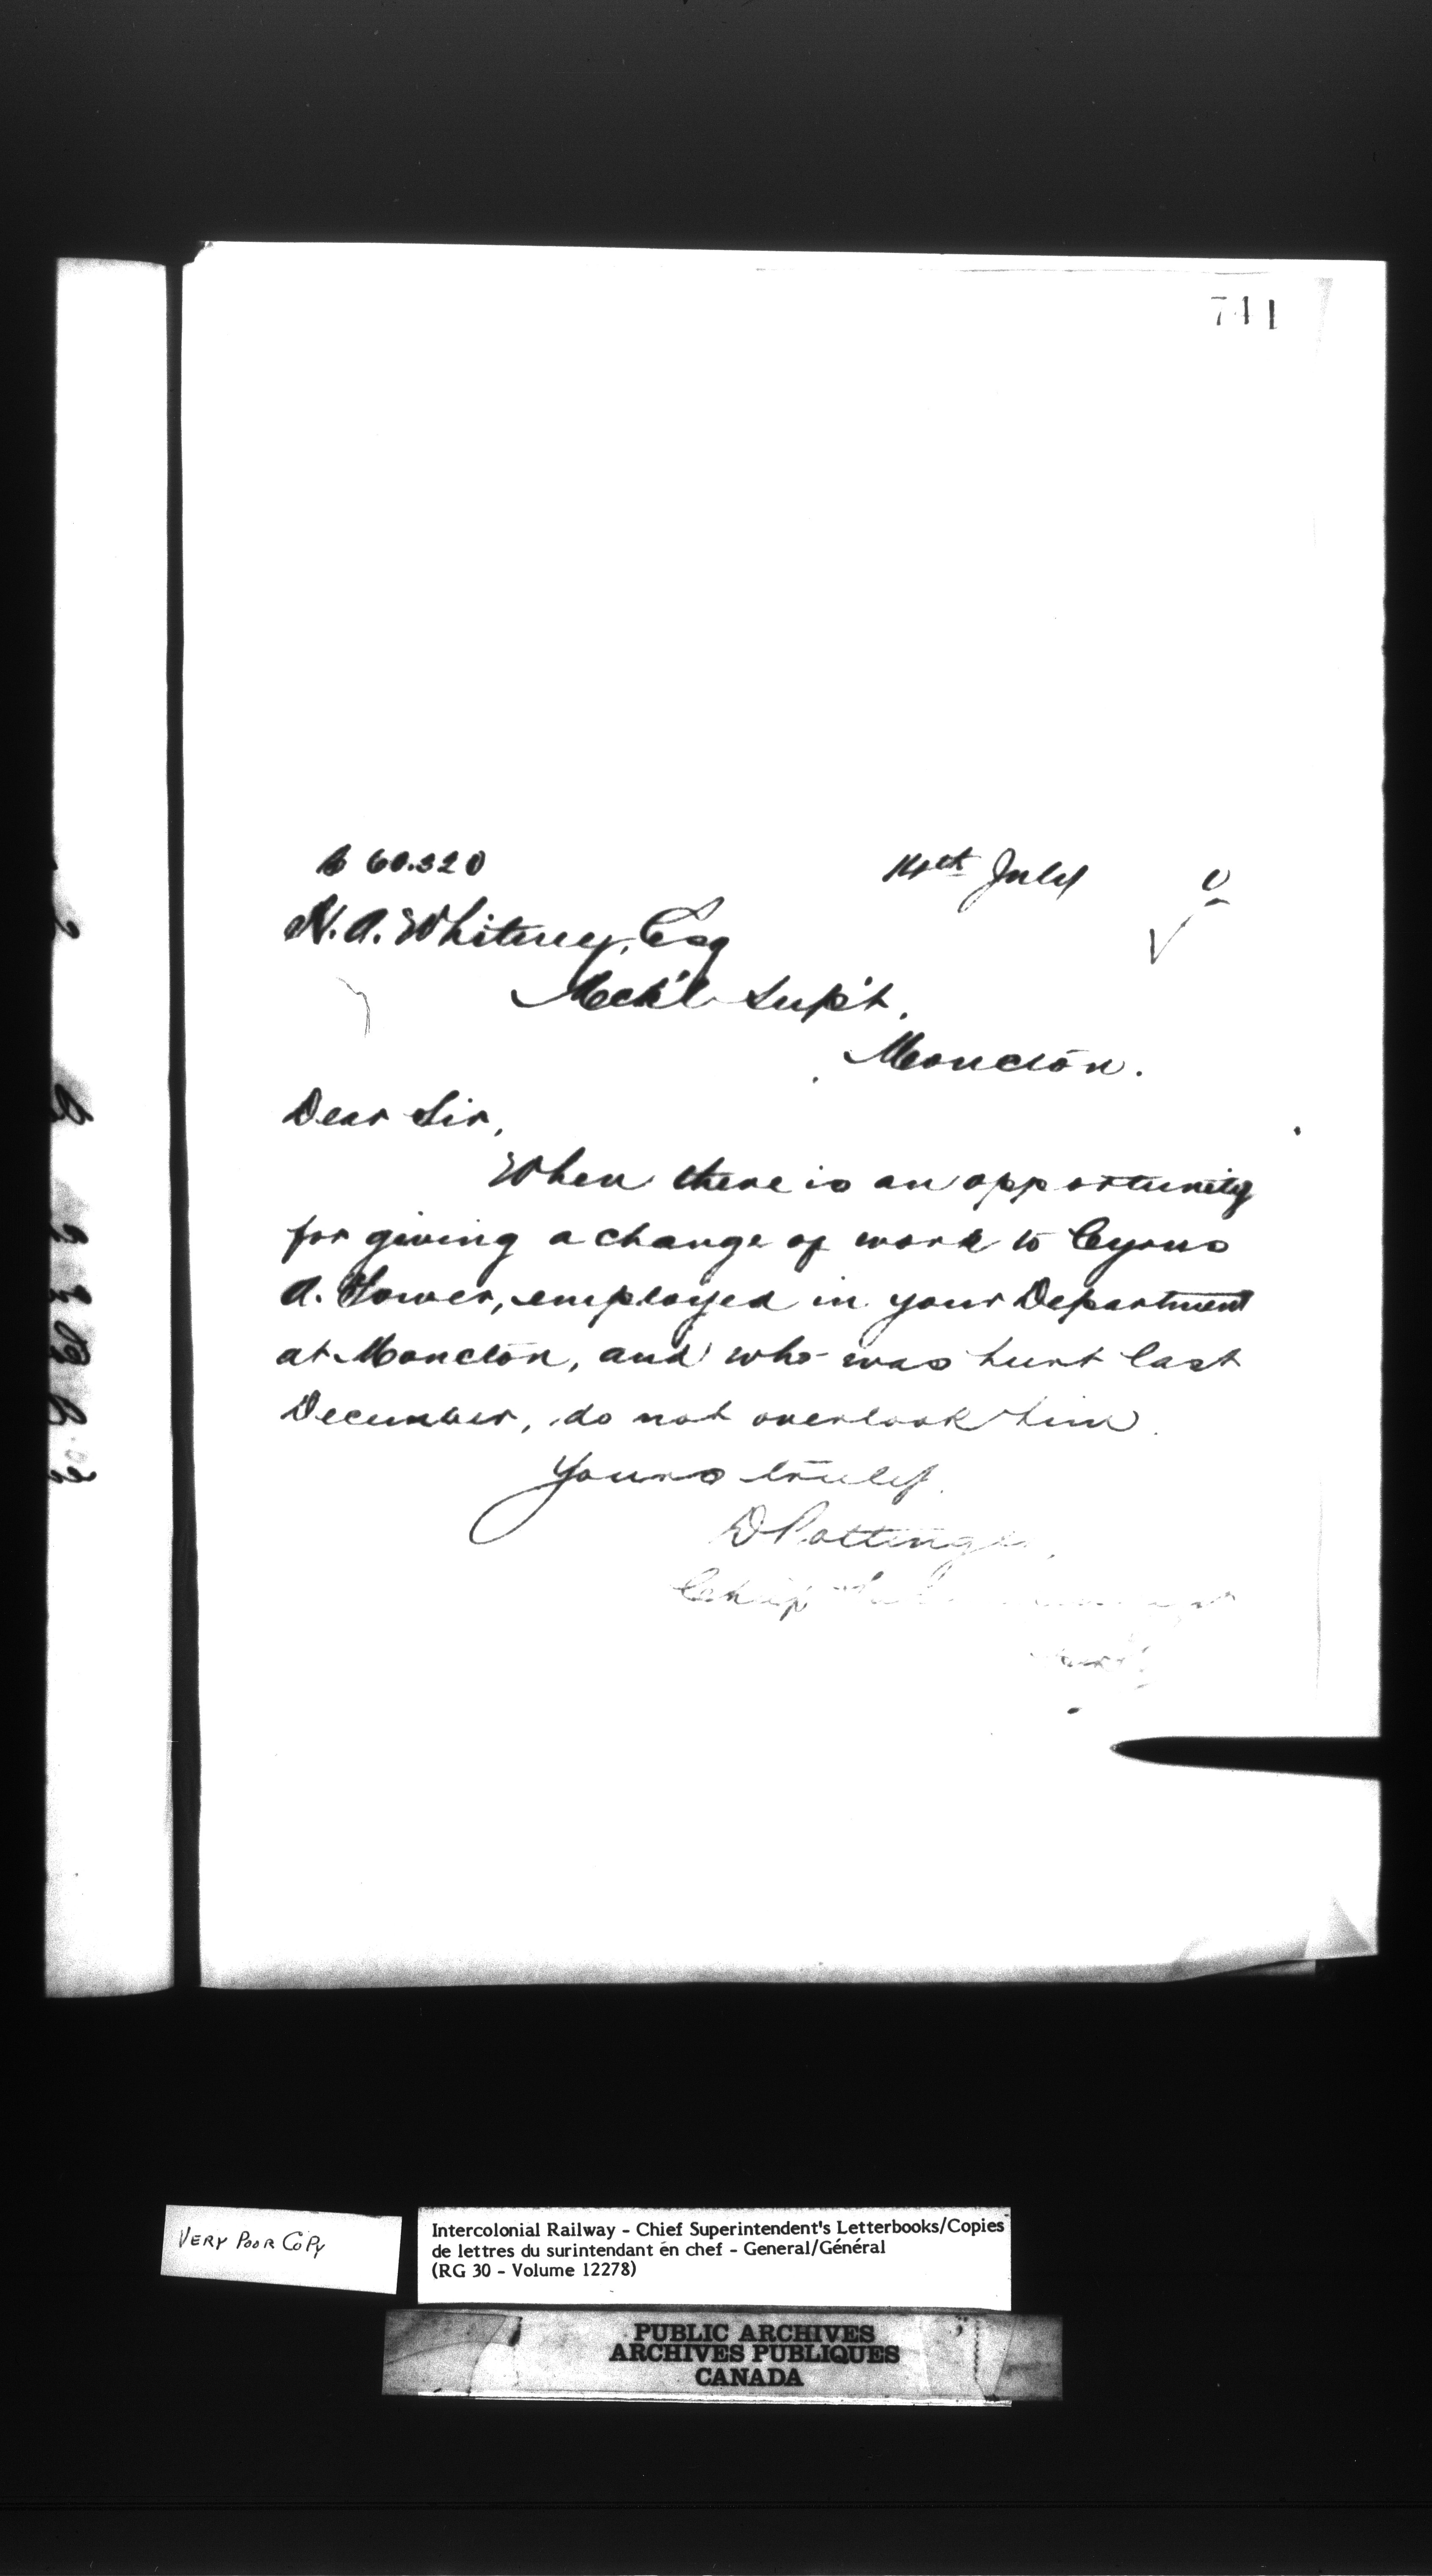 741
60.320
14th July
N. A. Whitney, Esq
Mech'l Sup't.
Moncton.
Dear Sir,
When there is an opportunity
for giving a change of work to Cyrus
A. employed in your Department
at Moncton, and who was hurt last
December, do not overlook him.
Yours truly.
D Pottinger
Chief
VERY POOR COPY
Intercolonial Railway - Chief Superintendent's Letterbooks/Copies
de lettres du surintendant en chef - General/Général
(RG 30 - Volume 12278)
PUBLIC ARCHIVES
ARCHIVES PUBLIQUES
CANADA